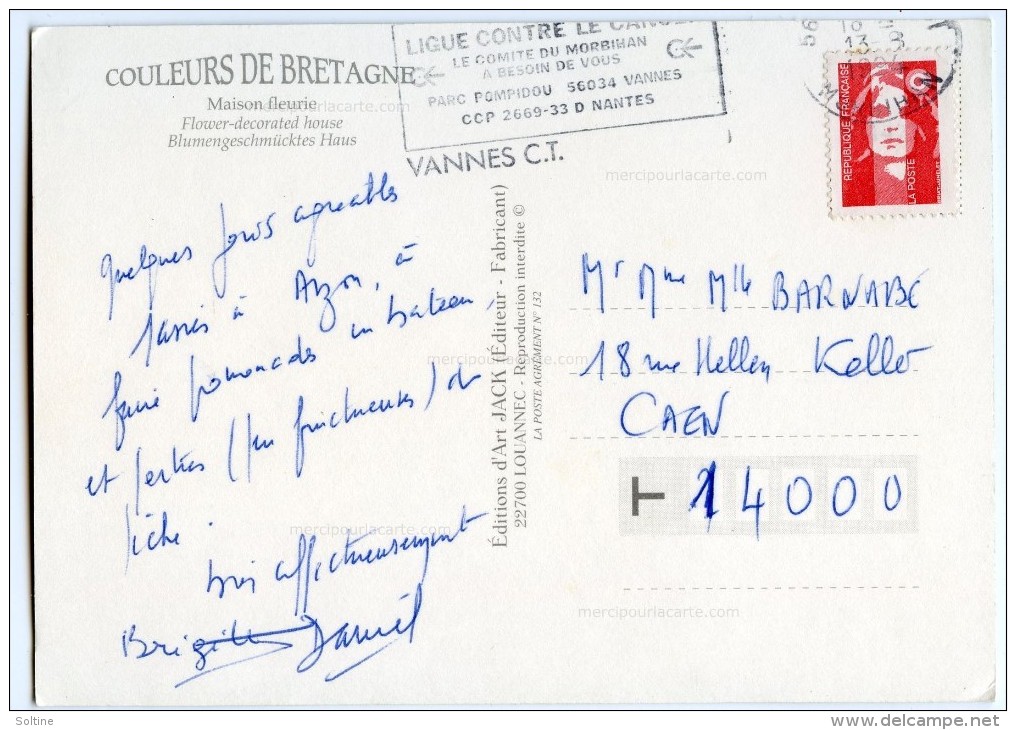 COULEURS DE BRETAGNE
Maison fleurie
Flower-decorated house
Blumengeschmücktes Haus
LIGUE CONTRE LE CANCE
LE COMITE DU MORBIHAN
A BESOIN DE VOUS
PARC POMPIDOU 56034 VANNES
CCP 2669-33 D NANTES
VANNES C.T.
56
13-8
REPUBLIQUE FRANÇAISE
LA POSTE
Quelques jours agreables
passés à Arzon, à
faire promenades en bateau,
et parties (peu fructueuses) de
pêche.
très affectueusement
Brigitte Daniel
Éditions d'Art JACK (Éditeur - Fabricant)
22700 LOUANNEC - Reproduction interdite ©
LA POSTE AGRÉMENT N° 132
Mr Mme Mlle BARNABE
18 rue Hellen Keller
CAEN
14000
mercipourlacarte.com
mercipourlacarte.com
mercipourlacarte.com
mercipourlacarte.com
mercipourlacarte.com
Soltine
delcampe.net